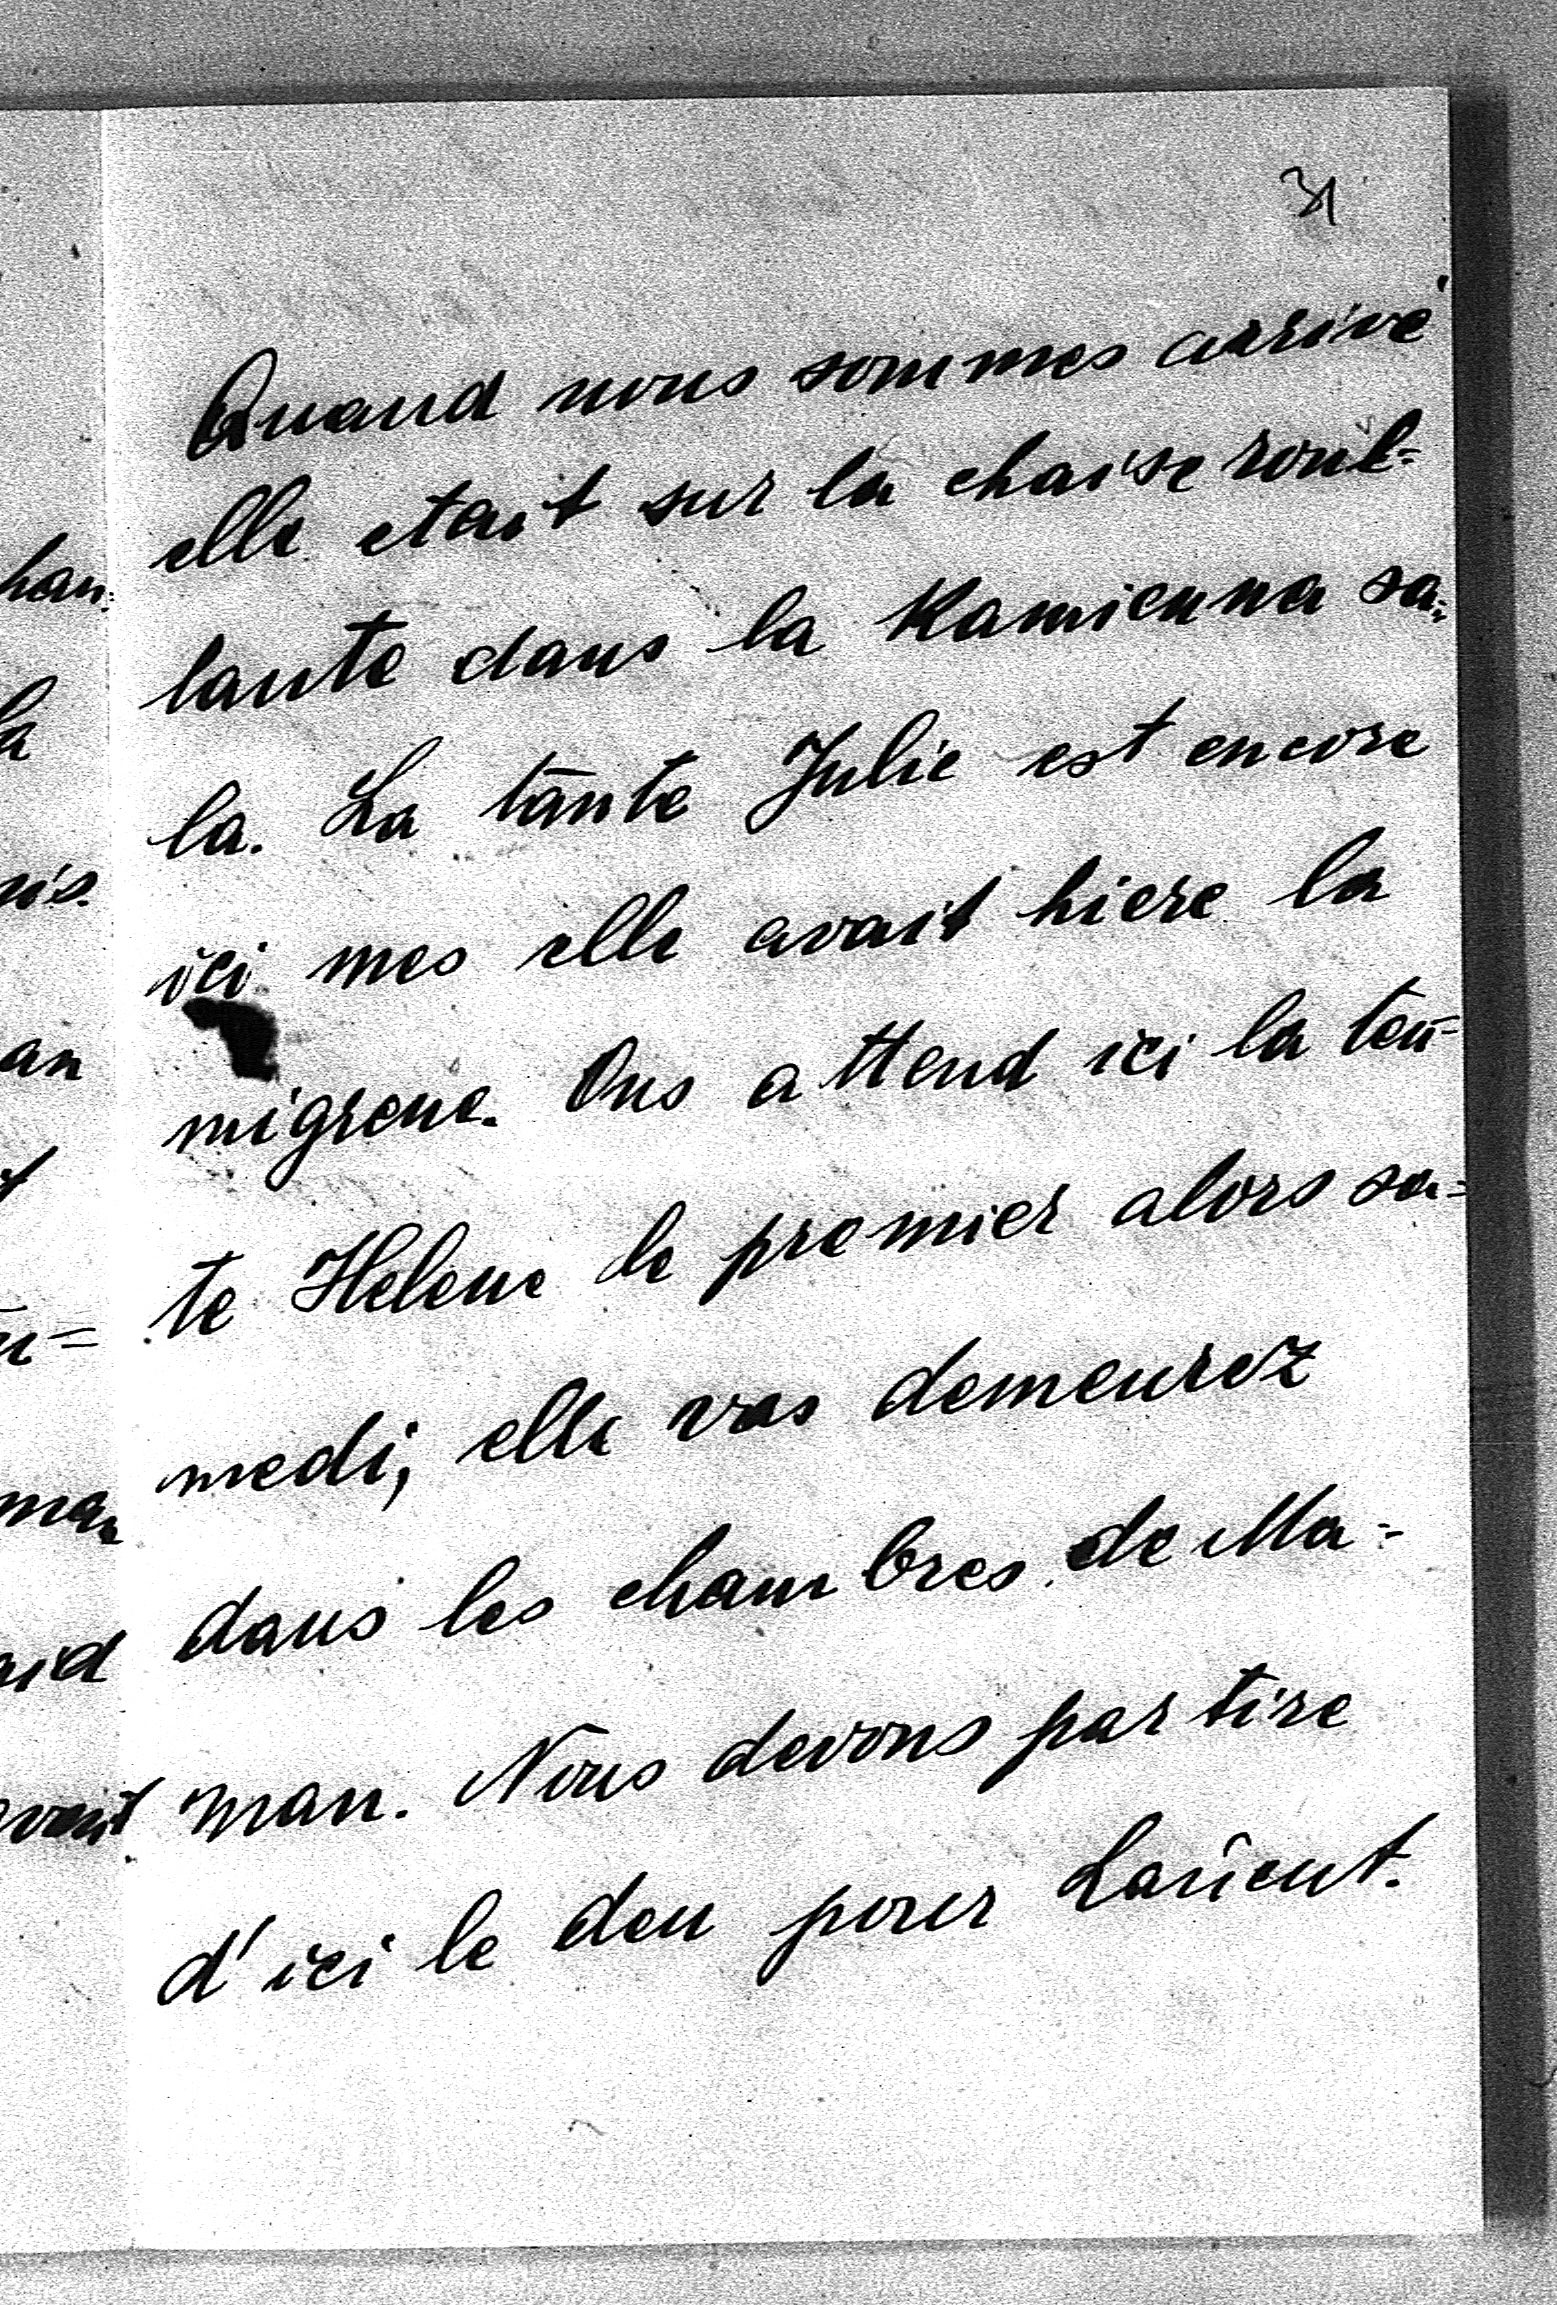 31
Quand nous sommes arrivé
elle etait sur la chaise roul=
lante dans la Kamienna sa=
la. La tante Julie est encore
ici mes elle avait hiere la
migrene. Ons attend ici la ten=
te Helene le premier alors sa=
medi, elle vas demeurez
dans les chambres de Ma=
man. Nous devons partire
d'ici le deu pour Lancut.
han=
la
an
man